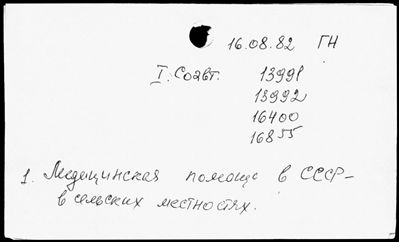 16.08.82 ГН
I. Соавт. 13991
13992
16400
16855
1. Медицинская помощь в СССР -
в сельских местностях.